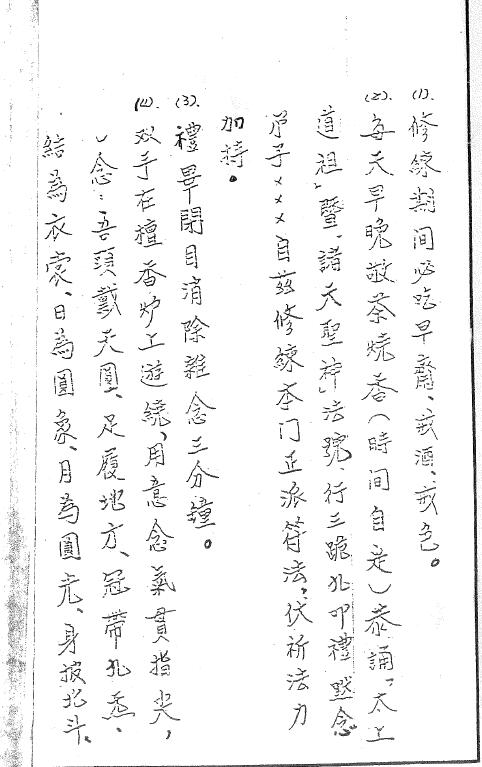 (1).修練期间必吃早齋、戒酒、戒色。
(2).每天早晚敬茶燒香(時间自定)恭誦「太上
道祖」暨、諸天聖神」法號、行三跪九叩禮默念
弟子×××自兹修練本门正派符法、伏祈法力
加持。
(3).禮畢閉目消除雜念三分鐘。
(4).双手在檀香炉上遊繞、用意念氣貫指尖,
念:吾頭戴天圓、足履地方、冠帶九炁、
結為衣裳、日為圓象、月為圓光、身披北斗、